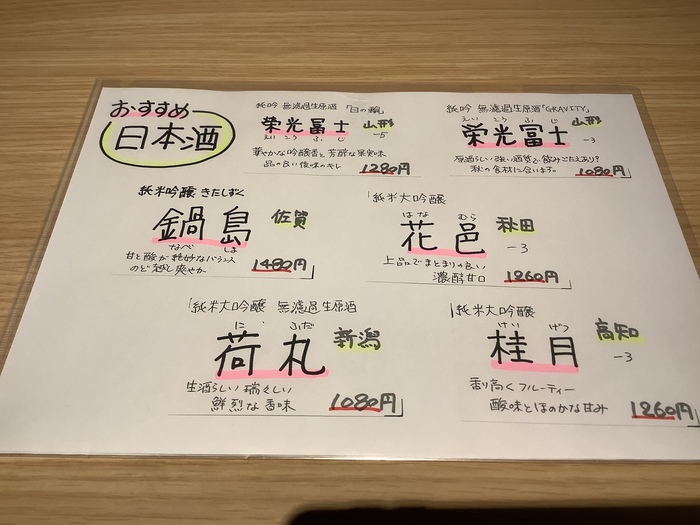 おすすめ
日本酒
純吟 無濾過生原酒 「日の輪」
栄光冨士 山形
えいこうふじ -5
華やかな吟醸香と芳醇な果実味
品の良い後味のキレ 1280円
純吟 無濾過生原酒「GRAVITY」
栄光冨士 山形
えいこうふじ -3
原酒らしい強い酒質で飲みごたえあり!
秋の食材に合います。 1080円
純米吟醸 きたしずく
鍋島 佐賀
なべしま
甘と酸が絶妙なバランス
のど越し爽やか 1480円
純米大吟醸
はな むら
花邑 秋田
-3
上品でまとまりの良い
濃醇甘口 1260円
純米大吟醸 無濾過生原酒
に ふだ
荷札 新潟
生酒らしい瑞々しい
鮮烈な香味 1080円
純米大吟醸
けい げつ
桂月 高知
-3
香り高くフルーティー
酸味とほのかな甘み 1260円